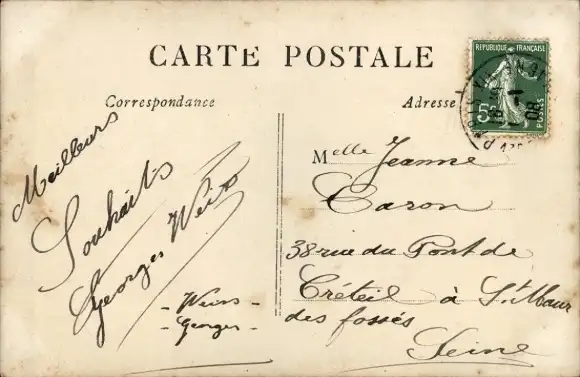 CARTE POSTALE
Correspondance
Adresse
REPUBLIQUE FRANÇAISE
5c
POSTES
08
Meilleurs
Souhaits
Georges Weiss
- Weiss -
- Georges -
Melle Jeanne
Caron
38 rue du Pont de
Créteil à St Maur
des fossés
Seine